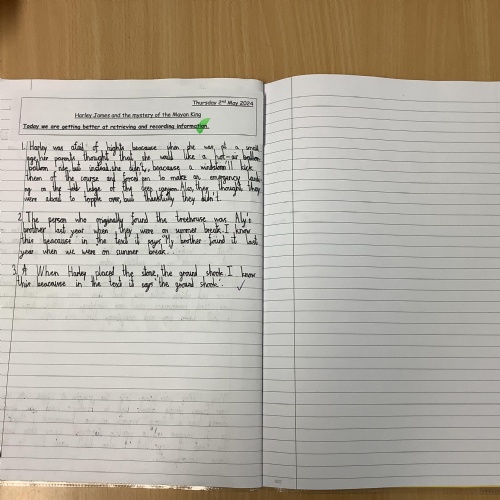 Thursday 2nd May 2024
Harley James and the mystery of the Mayan King
Today we are getting better at retrieving and recording information.
1. Harley was afraid of hights beacause when she was at a small
age, her parents thought that she would like a hot-air balloon
balloon ride, but instead she didn't, beacause a windstorm kick
them of the course and forced on to make an emergency landi
ng on the side ledge of the deep canyon. Also, they thought they
were about to topple over, but thankfully they didn't.
2. The person who originally found the treehouse was Aly's
brother last year when they were on summer break. I know
this beacause in the text it says 'My brother found it last
year when we were on summer break'.
3. A When Harley placed the stone, the ground shook. I know
this beacause in the text it says 'the ground shook'.